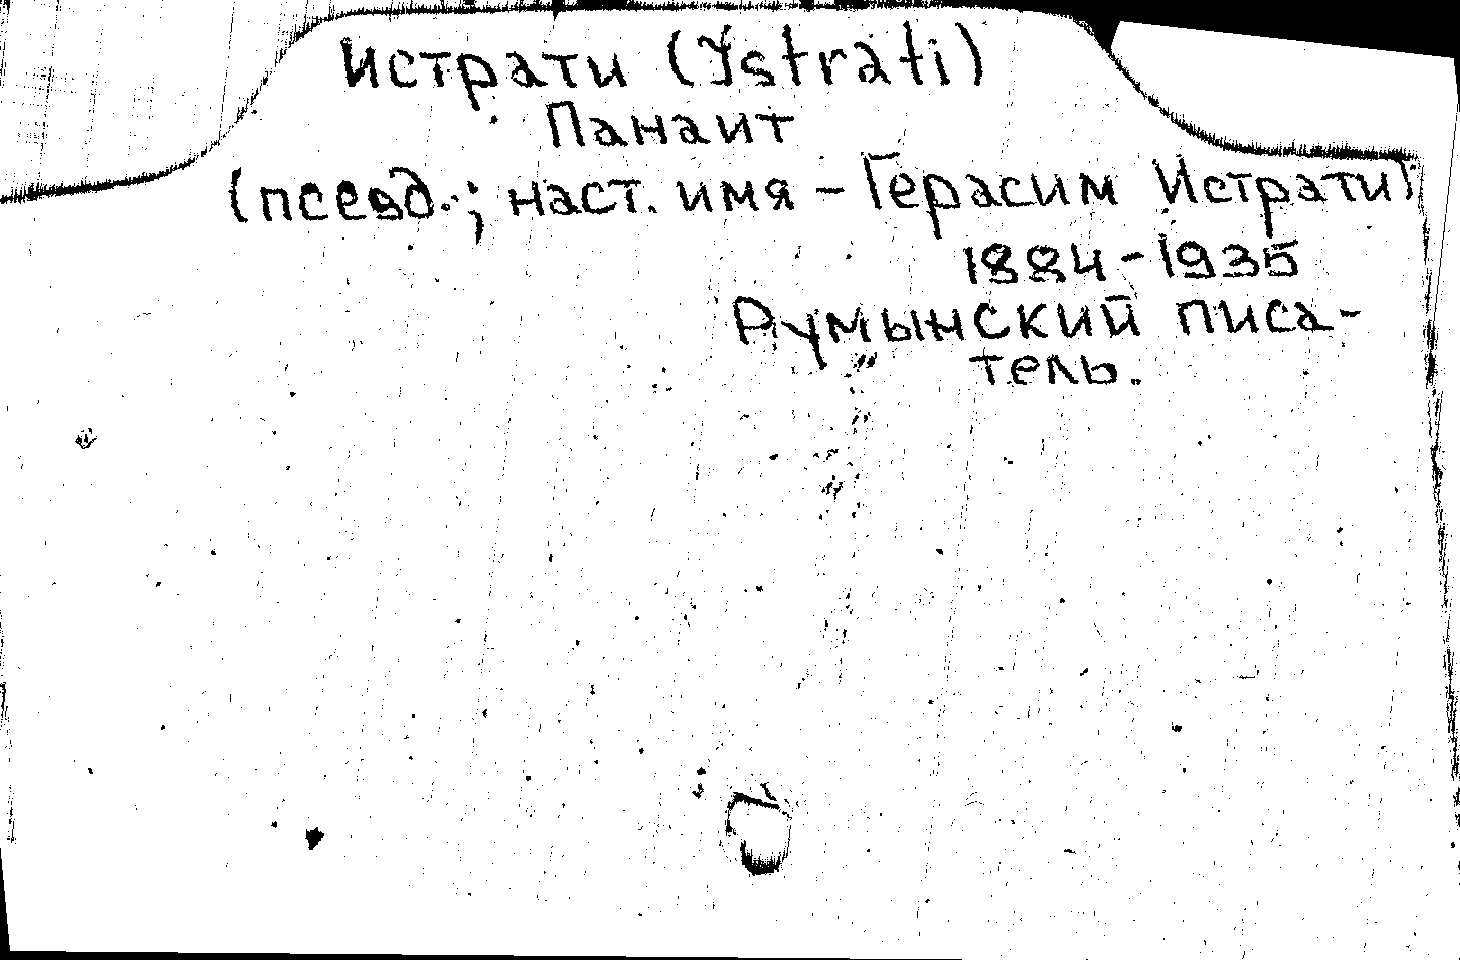 Истрати (Istrati)
Панаит
(псевд.; наст. имя – Герасим Истрати)
1884-1935
Румынский писа-
тель.